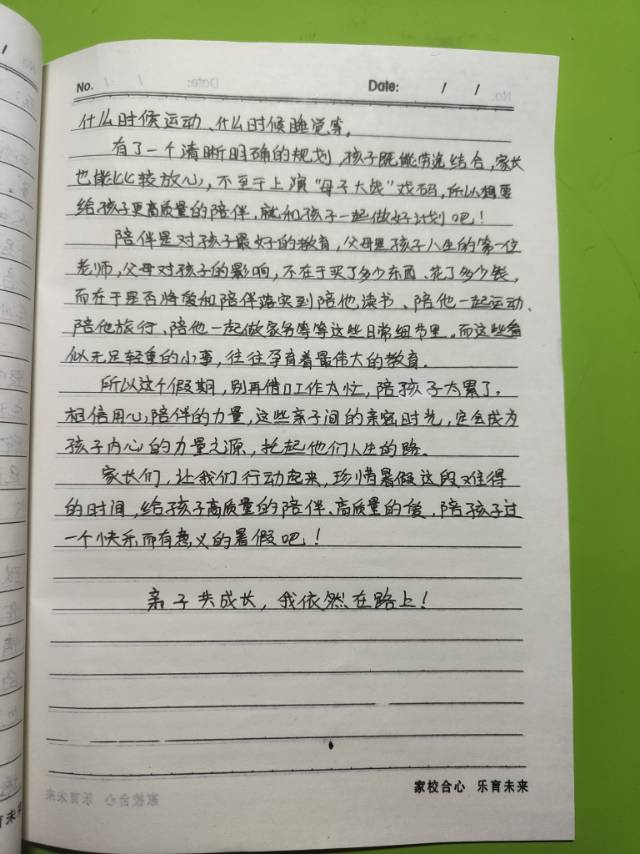 No.
Date: / /
什么时候运动、什么时候睡觉等。
有了一个清晰明确的规划,孩子既能劳逸结合,家长
也能比较放心,不至于上演“母子大战”戏码,所以想要
给孩子更高质量的陪伴,就和孩子一起做好计划吧!
陪伴是对孩子最好的教育,父母是孩子人生的第一位
老师,父母对孩子的影响,不在于买了多少东西、花了多少钱,
而在于是否将爱和陪伴落实到陪他读书、陪他一起运动、
陪他旅行、陪他一起做家务等等这些日常细节里。而这些看
似无足轻重的小事,往往孕育着最伟大的教育。
所以这个假期,别再借口工作太忙,陪孩子太累了。
相信用心陪伴的力量,这些亲子间的亲密时光,定会成为
孩子内心的力量之源,托起他们人生的路。
家长们,让我们行动起来,珍惜暑假这段难得
的时间,给孩子高质量的陪伴、高质量的爱,陪孩子过
一个快乐而有意义的暑假吧!
亲子共成长,我依然在路上!
家校合心 乐育未来